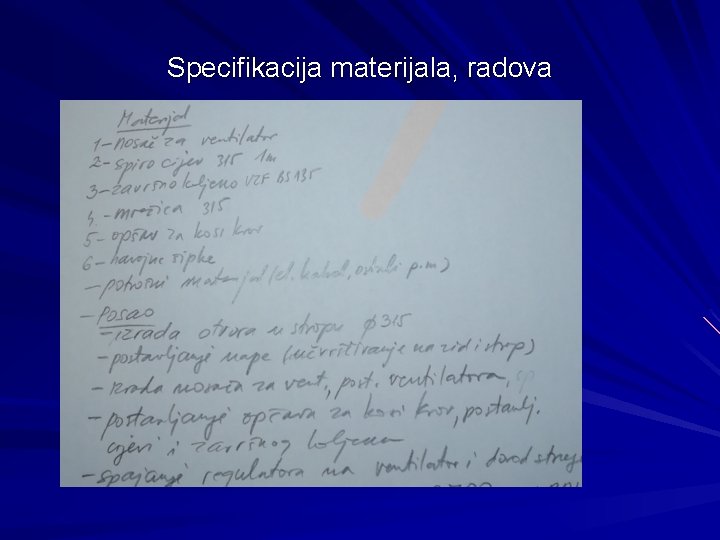 Specifikacija materijala, radova
Materijal
1- nosač za ventilator
2- spiro cijev 315 1m
3- završno koljeno VZF BS 135
4. - mrežica 315
5- opšav za kosi krov
6- navojne šipke
- potrošni materijal (el. kabal, ostali p.m)
- Posao
- izrada otvora u stropu ϕ 315
- postavljanje nape (učvršćivanje na zid i strop)
- Izrada nosača za vent., post. ventilatora,
- postavljanje opšava za kosi krov, postavlj.
cijevi i završnog koljena
- spajanje regulatora na ventilator i dovod struje